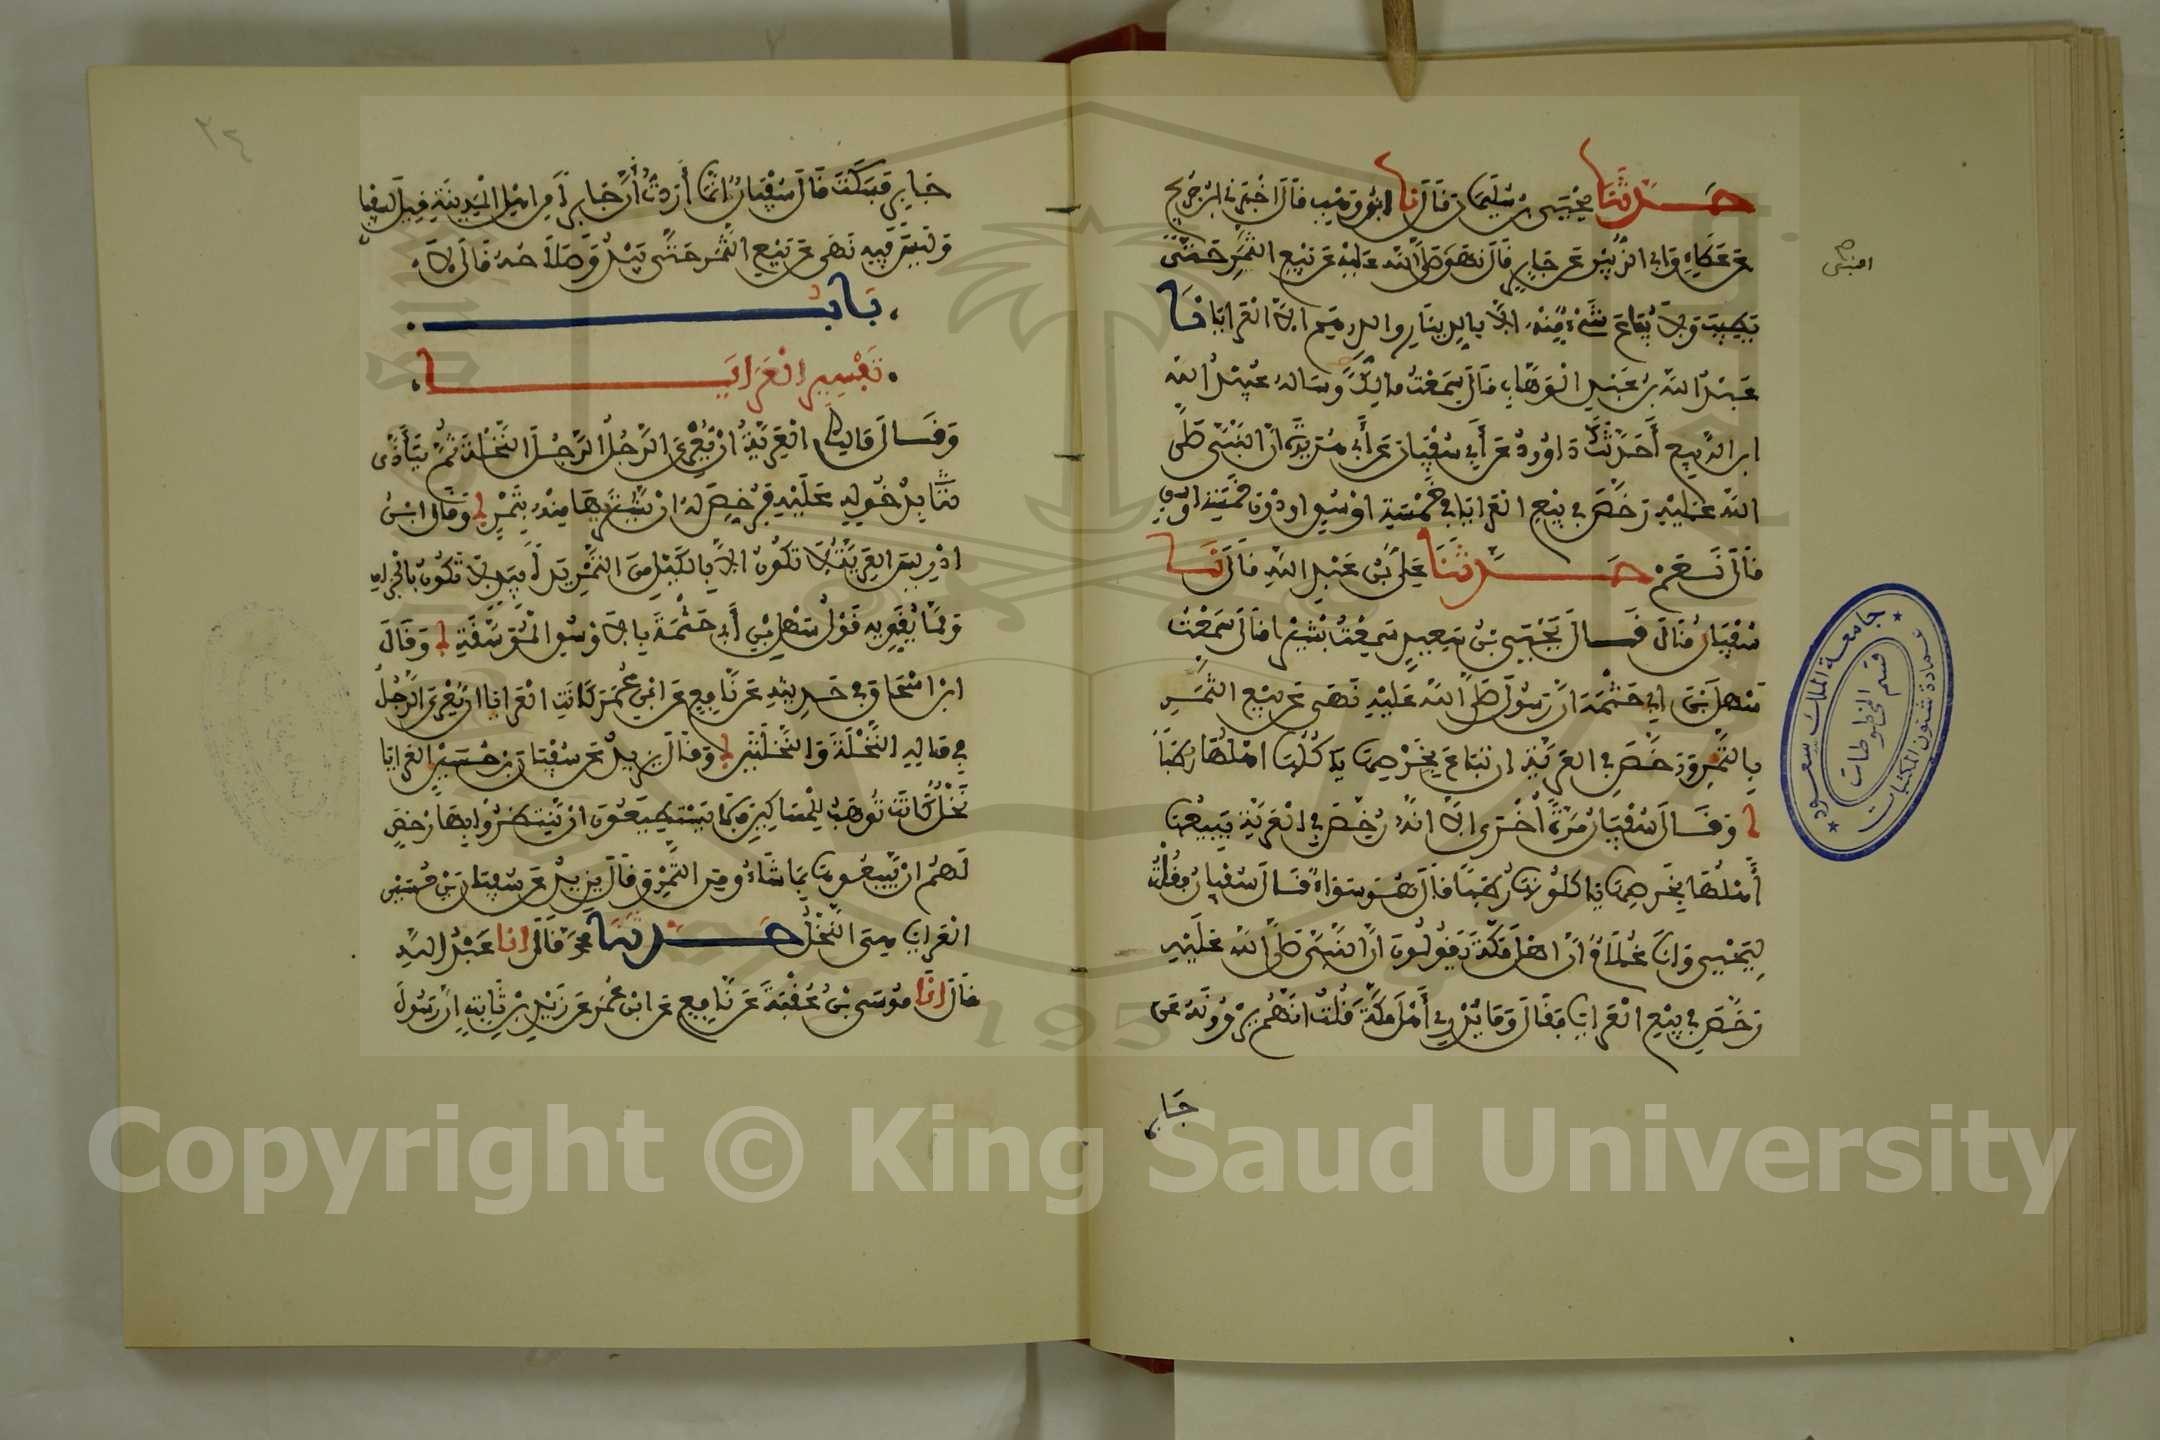 حدثنا يحيى بن سليمان قال نا ابن وهب قال اخبرني ابن جريج
عن عطاء وابي الزبير عن جابر قال نهى صلى الله عليه عن بيع الثمر حتى
يطيب ولا يباع شيء منه الا بالدينار والدرهم الا العرايا نا
عبد الله بن عبد الوهاب قال سمعت مالكا وساله عبيد الله
ابن الربيع أحدثك داوود عن أبي سفيان عن أبي هريرة ان النبي صلى
الله عليه رخص في بيع العرايا في خمسة اوسق او دون خمسة اوسق
قال نعم حدثنا علي بن عبد الله قال نا
سفيان قال قال يحيى بن سعيد سمعت بشيرا قال سمعت
سهل بن ابي حثمة ان رسول صلى الله عليه نهى عن بيع الثمر
بالتمر ورخص في العرية ان تباع بخرصها ياكلها اهلها رطبا
وقال سفيان مرة أخرى الا انه رخص في العرية يبيعها
أهلها بخرصها ياكلونها رطبا قال هو سواء قال سفيان فقلت
ليحيى وانا غلام ان اهل مكة يقولون ان النبي صلى الله عليه
رخص في بيع العرايا فقال وما يدري أهل مكة قلت انهم يروونه عن
جابر
جابر فسكت قال سفيان انما أردت أن جابرا من اهل المدينة قيل لسفيان
وليس فيه نهى عن بيع الثمر حتى يبدو صلاحه قال لا
باب
تفسير العرايا
وقال مالك العرية ان يعري الرجل الرجل النخلة ثم يتأذى
بدخوله عليه فرخص له ان يشتريها منه بتمر وقال ابن
ادريس العرية لا تكون الا بالكيل من التمر يدا بيد لا تكون بالجزاف
ومما يقويه قول سهل بن أبي حثمة بالاوسق الموسقة وقال
ابن اسحاق في حديثه عن نافع عن ابن عمر كانت العرايا ان يعري الرجل
في ماله النخلة والنخلتين وقال يزيد عن سفيان بن حسين العرايا
نخل كانت توهب للمساكين فما يستطيعون ان ينتظروا بها رخص
لهم ان يبيعوها بما شاءوا من التمر وقال يزيد عن سفيان بن حسين
العرايا هي النخل حدثنا محمد قال انا عبد الله
قال انا موسى بن عقبة عن نافع عن ابن عمر عن زيد بن ثابت ان رسول
جامعة الملك سعود
عمادة شئون المكتبات
قسم المخطوطات
٢٤
Copyright © King Saud University
195